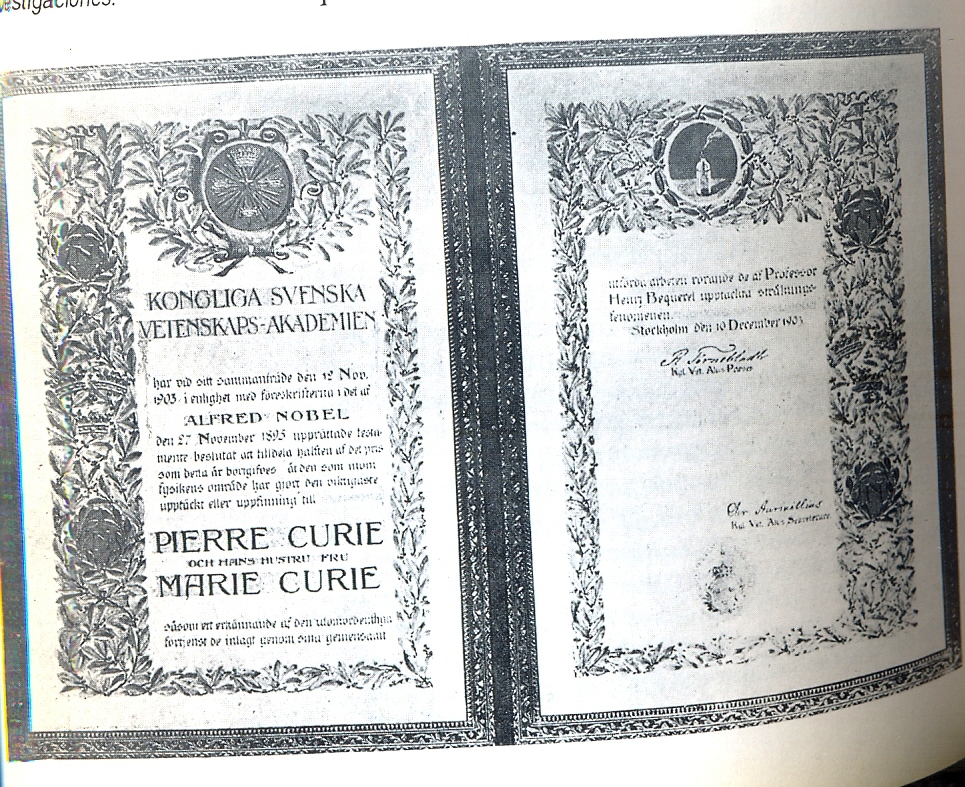 estigaciones.
KONGLIGA SVENSKA
VETENSKAPS-AKADEMIEN
har vid sitt sammanträde den 12 Nov.
1903 i enlighet med föreskrifterna i det af
ALFRED NOBEL
den 27 November 1895 upprättade testa-
mente beslutat att tilldela hälften af det pris
som detta år bortgifves åt den som inom
fysikens område har gjort den viktigaste
upptäckt eller uppfinning till
PIERRE CURIE
OCH HANS HUSTRU FRU
MARIE CURIE
såsom ett erkännande af den utomordentliga
förtjenst de inlagt genom sina gemensamt
utförda arbeten rörande de af Professor
Henri Bequerel upptäckta strålnings-
fenomenen.
Stockholm den 10 December 1903
Kgl. Vet. Ak:s Præses
Chr Aurivillius
Kgl. Vet. Ak:s Sekreterare